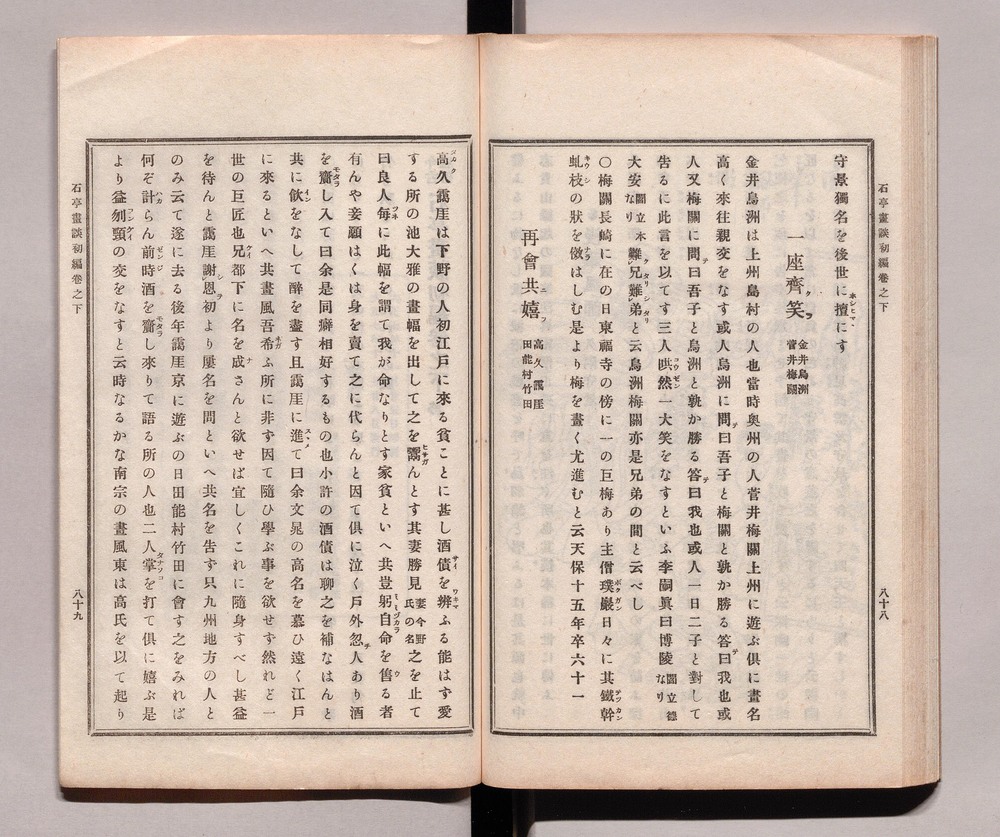 石亭畫談初編卷之下
八十八
守景獨名を後世に擅にす
一座齊笑
金井烏洲
菅井梅關
金井烏洲は上州島村の人也當時奥州の人菅井梅關上州に遊ぶ倶に畫名
高く來往親交をなす或人烏洲に問曰吾子と梅關と孰か勝る答曰我也或
人又梅關に問曰吾子と烏洲と孰か勝る答曰我也或人一日二子と對して
告るに此言を以てす三人哄然一大笑をなすといふ李嗣眞曰博陵閻立德なり
大安閻立本なり難兄難弟と云烏洲梅關亦是兄弟の間と云べし
〇梅關長崎に在の日東福寺の傍に一の巨梅あり主僧璞巖日々に其鐵幹
虬枝の狀を倣はしむ是より梅を畫く尤進むと云天保十五年卒六十一
再會共嬉
高久靄厓
田能村竹田
石亭畫談初編卷之下
八十九
高久靄崖は下野の人初江戸に來る貧ことに甚し酒債を辨ふる能はず愛
する所の池大雅の畫幅を出して之を鬻んとす其妻勝見妻今野氏の名之を止て
曰良人每に此幅を謂て我が命なりとす家貧といへ共豈躬自命を售る者
有んや妾願はくは身を賣て之に代らんと因て倶に泣く戸外忽人あり酒
を齎し入て曰余是同癖相好するもの也小許の酒債は聊之を補なはんと
共に飮をなして醉を盡す且靄崖に進て曰余文晁の高名を慕ひ遠く江戸
に來るといへ共畫風吾希ふ所に非ず因て隨ひ學ぶ事を欲せず然れど一
世の巨匠也兄都下に名を成さんと欲せば宜しくこれに隨身すべし甚益
を待んと靄崖謝恩初より屢名を問といへ共名を告ず只九州地方の人と
のみ云て遂に去る後年靄崖京に遊ぶの日田能村竹田に會す之をみれば
何ぞ計らん前時酒を齎し來りて語る所の人也二人掌を打て倶に嬉ぶ是
より益刎頸の交をなすと云時なるかな南宗の畫風東は高氏を以て起り